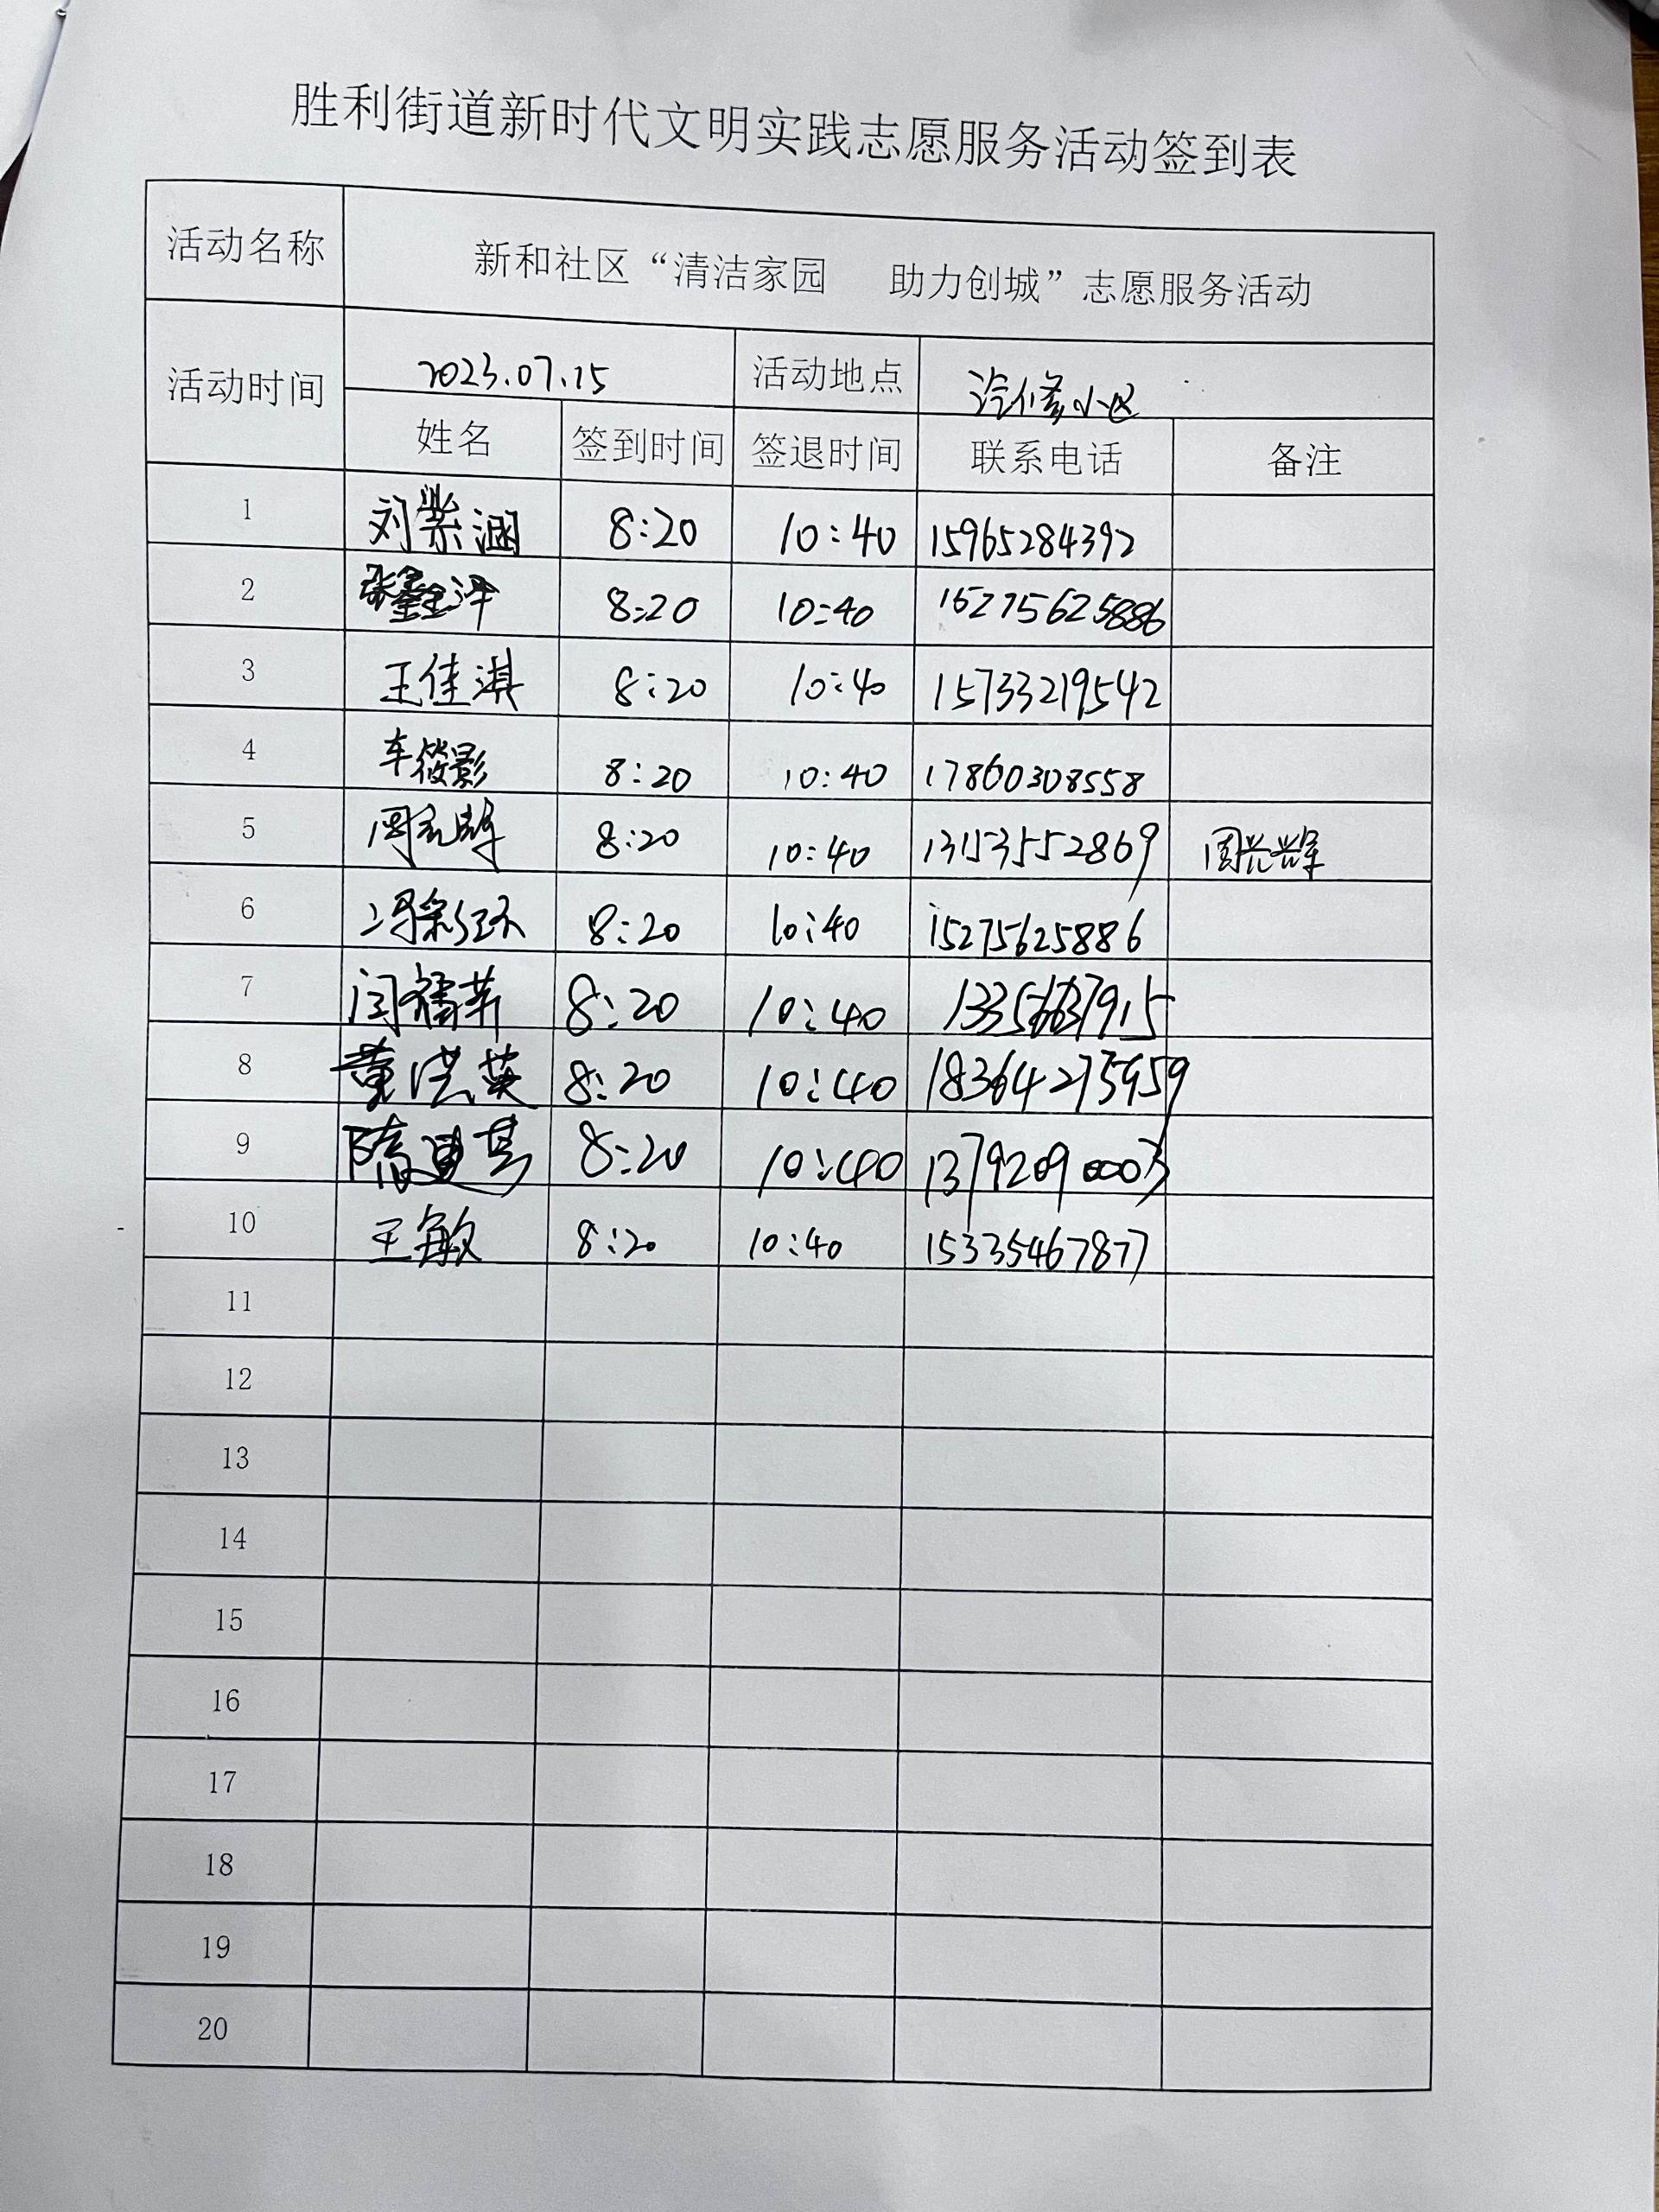 胜利街道新时代文明实践志愿服务活动签到表
活动名称 新和社区“清洁家园 助力创城”志愿服务活动
活动时间 2023.07.15 活动地点 汽修小区
姓名 签到时间 签退时间 联系电话 备注
1 刘紫涵 8:20 10:40 15965284392
2 8:20 10:40 15275625886
3 王佳淇 8:20 10:40 15733219542
4 车筱影 8:20 10:40 17860308558
5 周兴辉 8:20 10:40 13153552869 周兴辉
6 8:20 10:40 15275625886
7 闫 8:20 10:40
8 黄洪英 8:20 10:40 18364275959
9 隋迪其 8:20 10:40 13792090003
10 王敏 8:20 10:40 15335467877
11
12
13
14
15
16
17
18
19
20